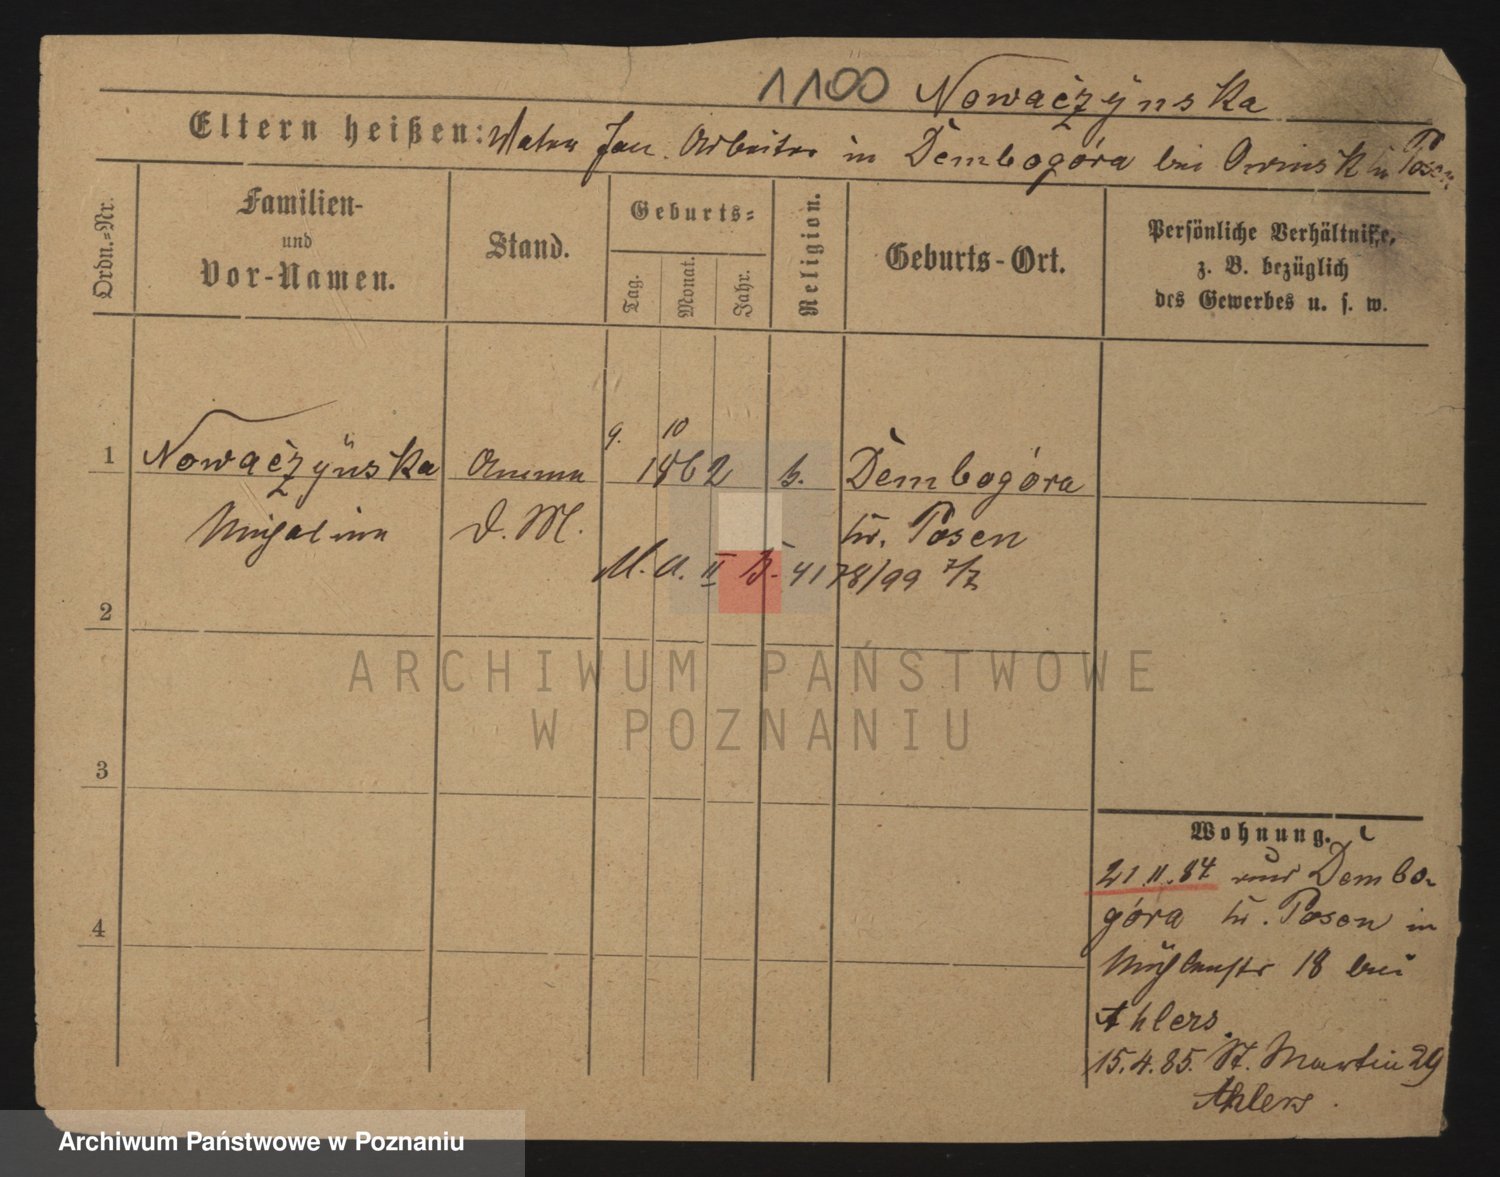 1100 Nowaczynska
Eltern heißen: Vater Jan. Arbeiter in Dembogóra bei Owinsk Kr Posen
Ordn.=Nr.
Familien-
und
Vor-Namen.
Stand.
Geburts=
Tag.
Monat.
Jahr.
Religion.
Geburts-Ort.
Persönliche Verhältnisse,
z. B. bezüglich
des Gewerbes u. s. w.
9. 10
1 Nowaczynska Amme 1862 k. Dembogóra
Michalina D. M. Kr. Posen
M. A. II B. 4178/99 7/7
2
3
4
Wohnung.
21.11.84 aus Dembo-
góra Kr. Posen in
Mühlenstr 18 bei
Ahlers.
15.4.85. St. Martin 29
Ahlers.
ARCHIWUM PAŃSTWOWE
W POZNANIU
Archiwum Państwowe w Poznaniu